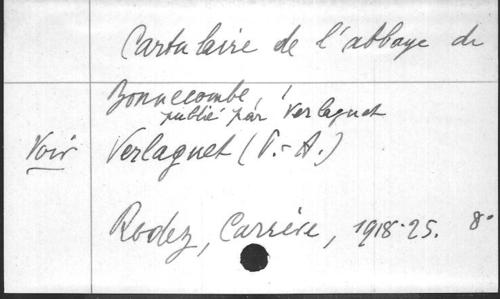 Cartulaire de l'abbaye de
Bonnecombe,
publié par Verlaguet
Voir Verlaguet (P.-A.)
Rodez, Carrère, 1918-25. 8°